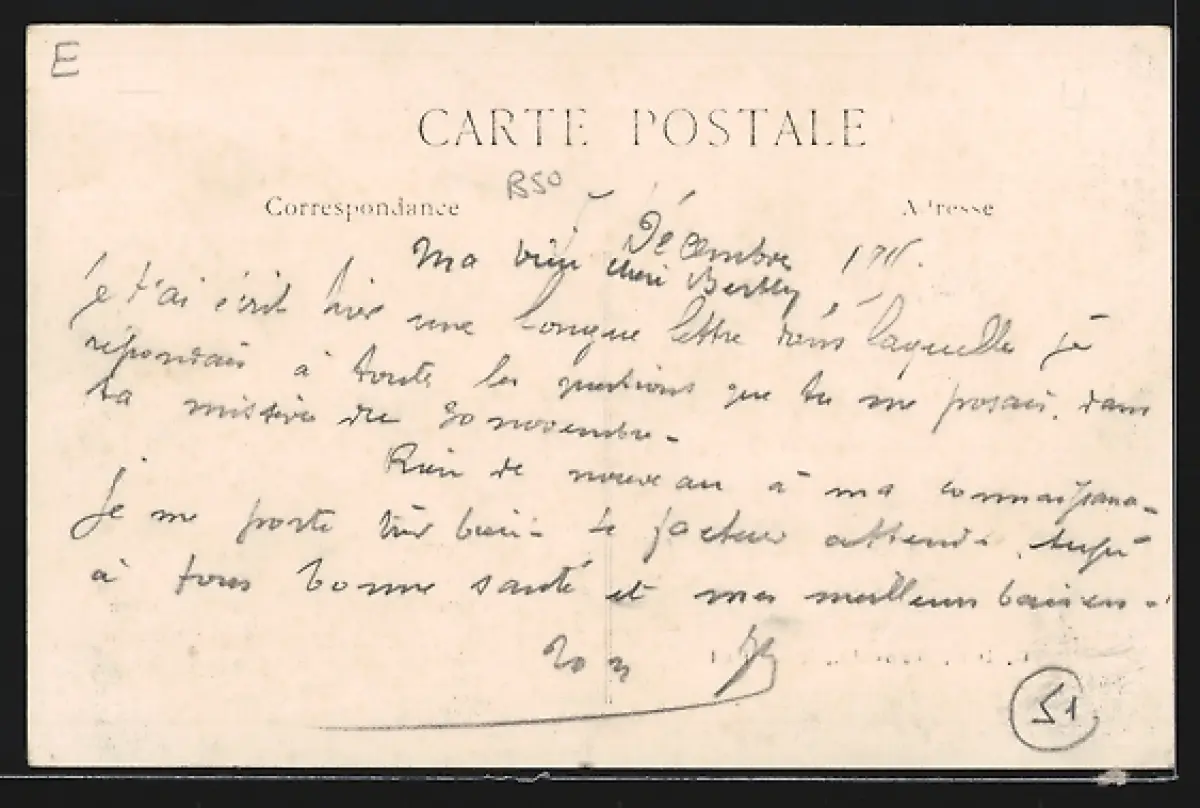 E
CARTE POSTALE
B50
Correspondance
Adresse
Décembre
Ma bien cheri Berthy,
je t'ai écrit hier une longue lettre dans laquelle je
répondais à toute les questions que tu me posais dans
ta missive du 30 novembre -
Rien de nouveau à ma connaissance -
je me porte très bien - le facteur attend
à tous bonne santé et mes meilleurs baisers -
Ton
51